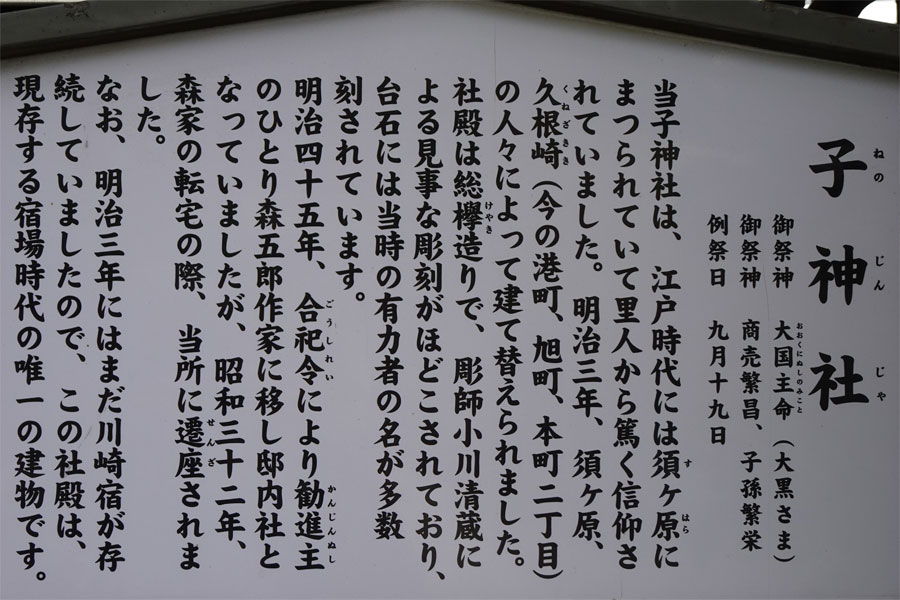 子神社
ねの じん じゃ
御祭神 大国主命(大黒さま)
おおくにぬしのみこと
御祭神 商売繁昌、子孫繁栄
例祭日 九月十九日
当子神社は、江戸時代には須ヶ原に
す はら
まつられていて里人から篤く信仰さ
れていました。明治三年、須ヶ原、
久根崎(今の港町、旭町、本町二丁目)
くねざき
の人々によって建て替えられました。
社殿は総欅造りで、彫師小川清蔵に
けやき
よる見事な彫刻がほどこされており、
台石には当時の有力者の名が多数
刻されています。
明治四十五年、合祀令により勧進主
ごうしれい かんじんぬし
のひとり森五郎作家に移し邸内社と
なっていましたが、昭和三十二年、
森家の転宅の際、当所に遷座されま
せんざ
した。
なお、明治三年にはまだ川崎宿が存
続していましたので、この社殿は、
現存する宿場時代の唯一の建物です。